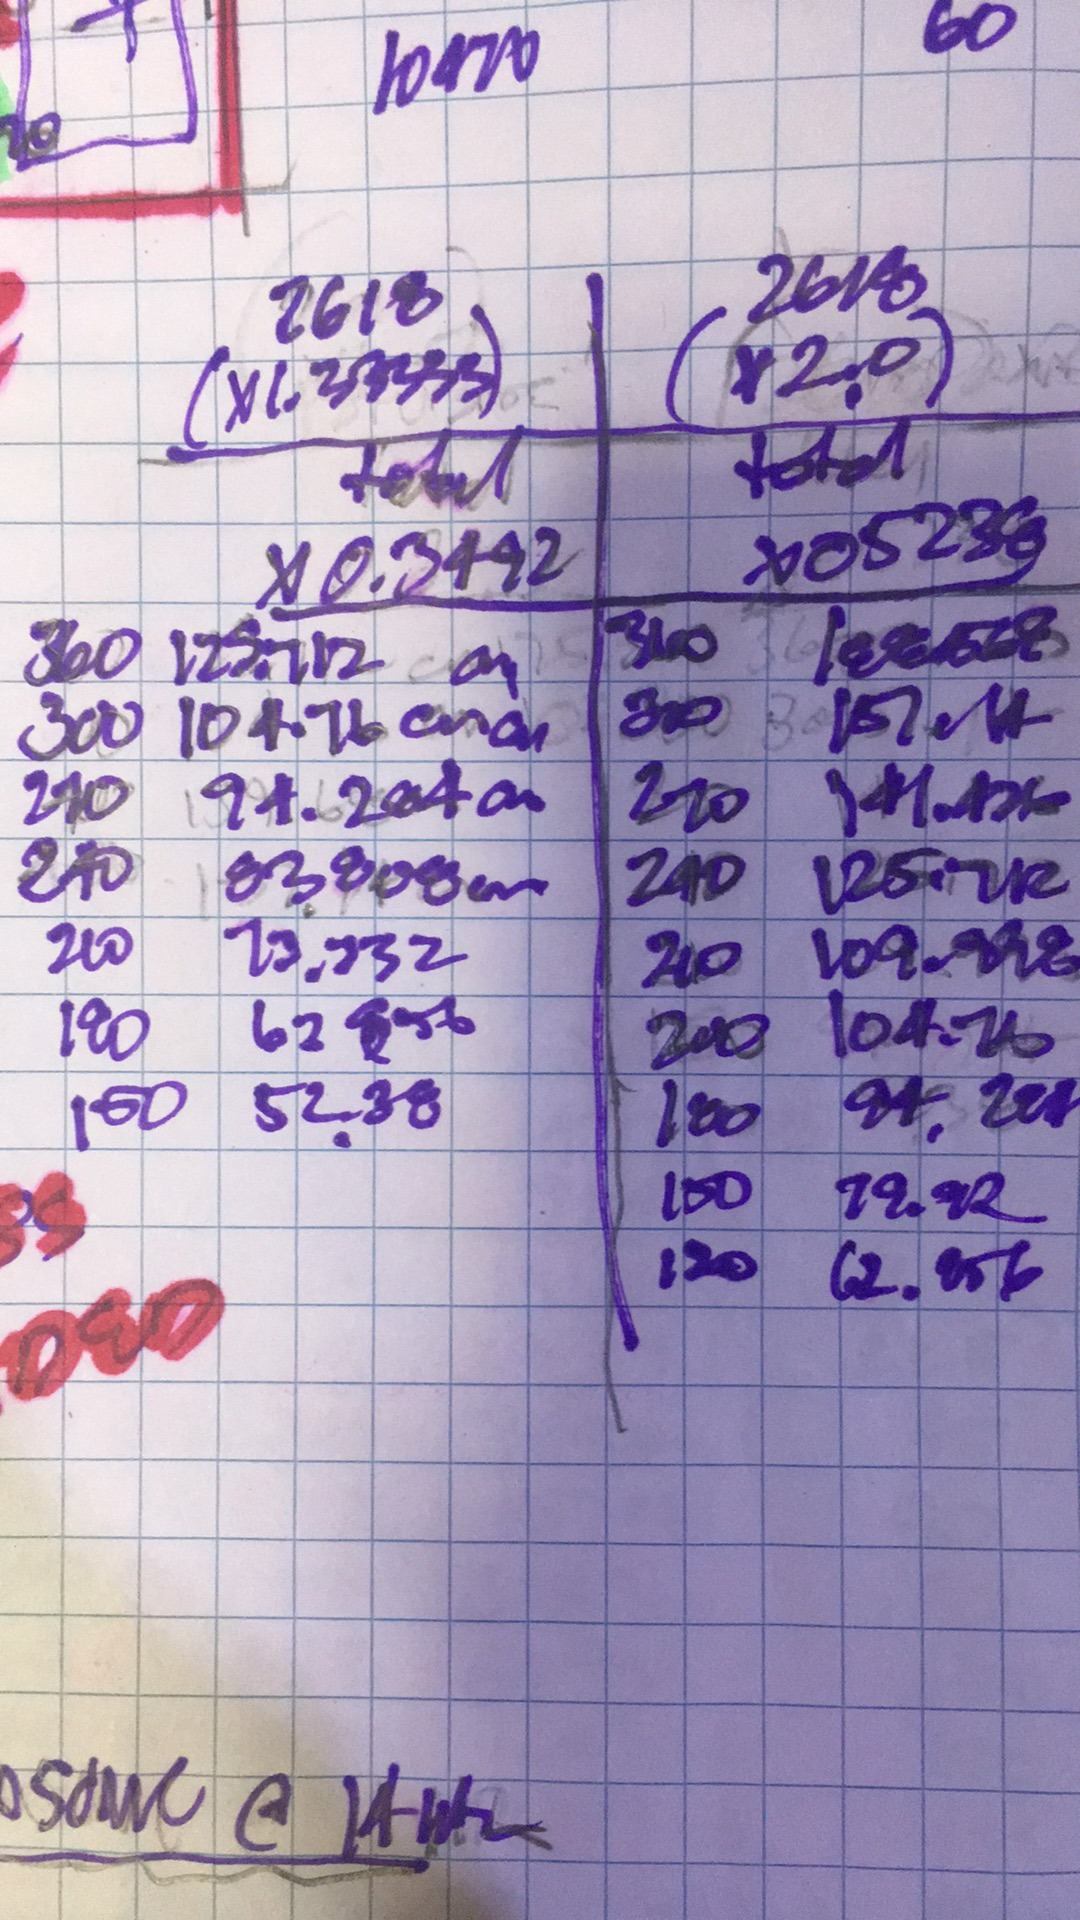 10470 60
2618 2618
(x1.33333) (x2.0)
total total
x0.3492 x05238
360 125.712 cm 360 188.568
300 104.76 cm cm 300 157.14
270 94.284 cm 270 141.426
240 83.808cm 240 125.712
210 73.332 210 109.998
180 62 856 200 104.76
150 52.38 180 94.284
150
120 62.856
@ 14Hz